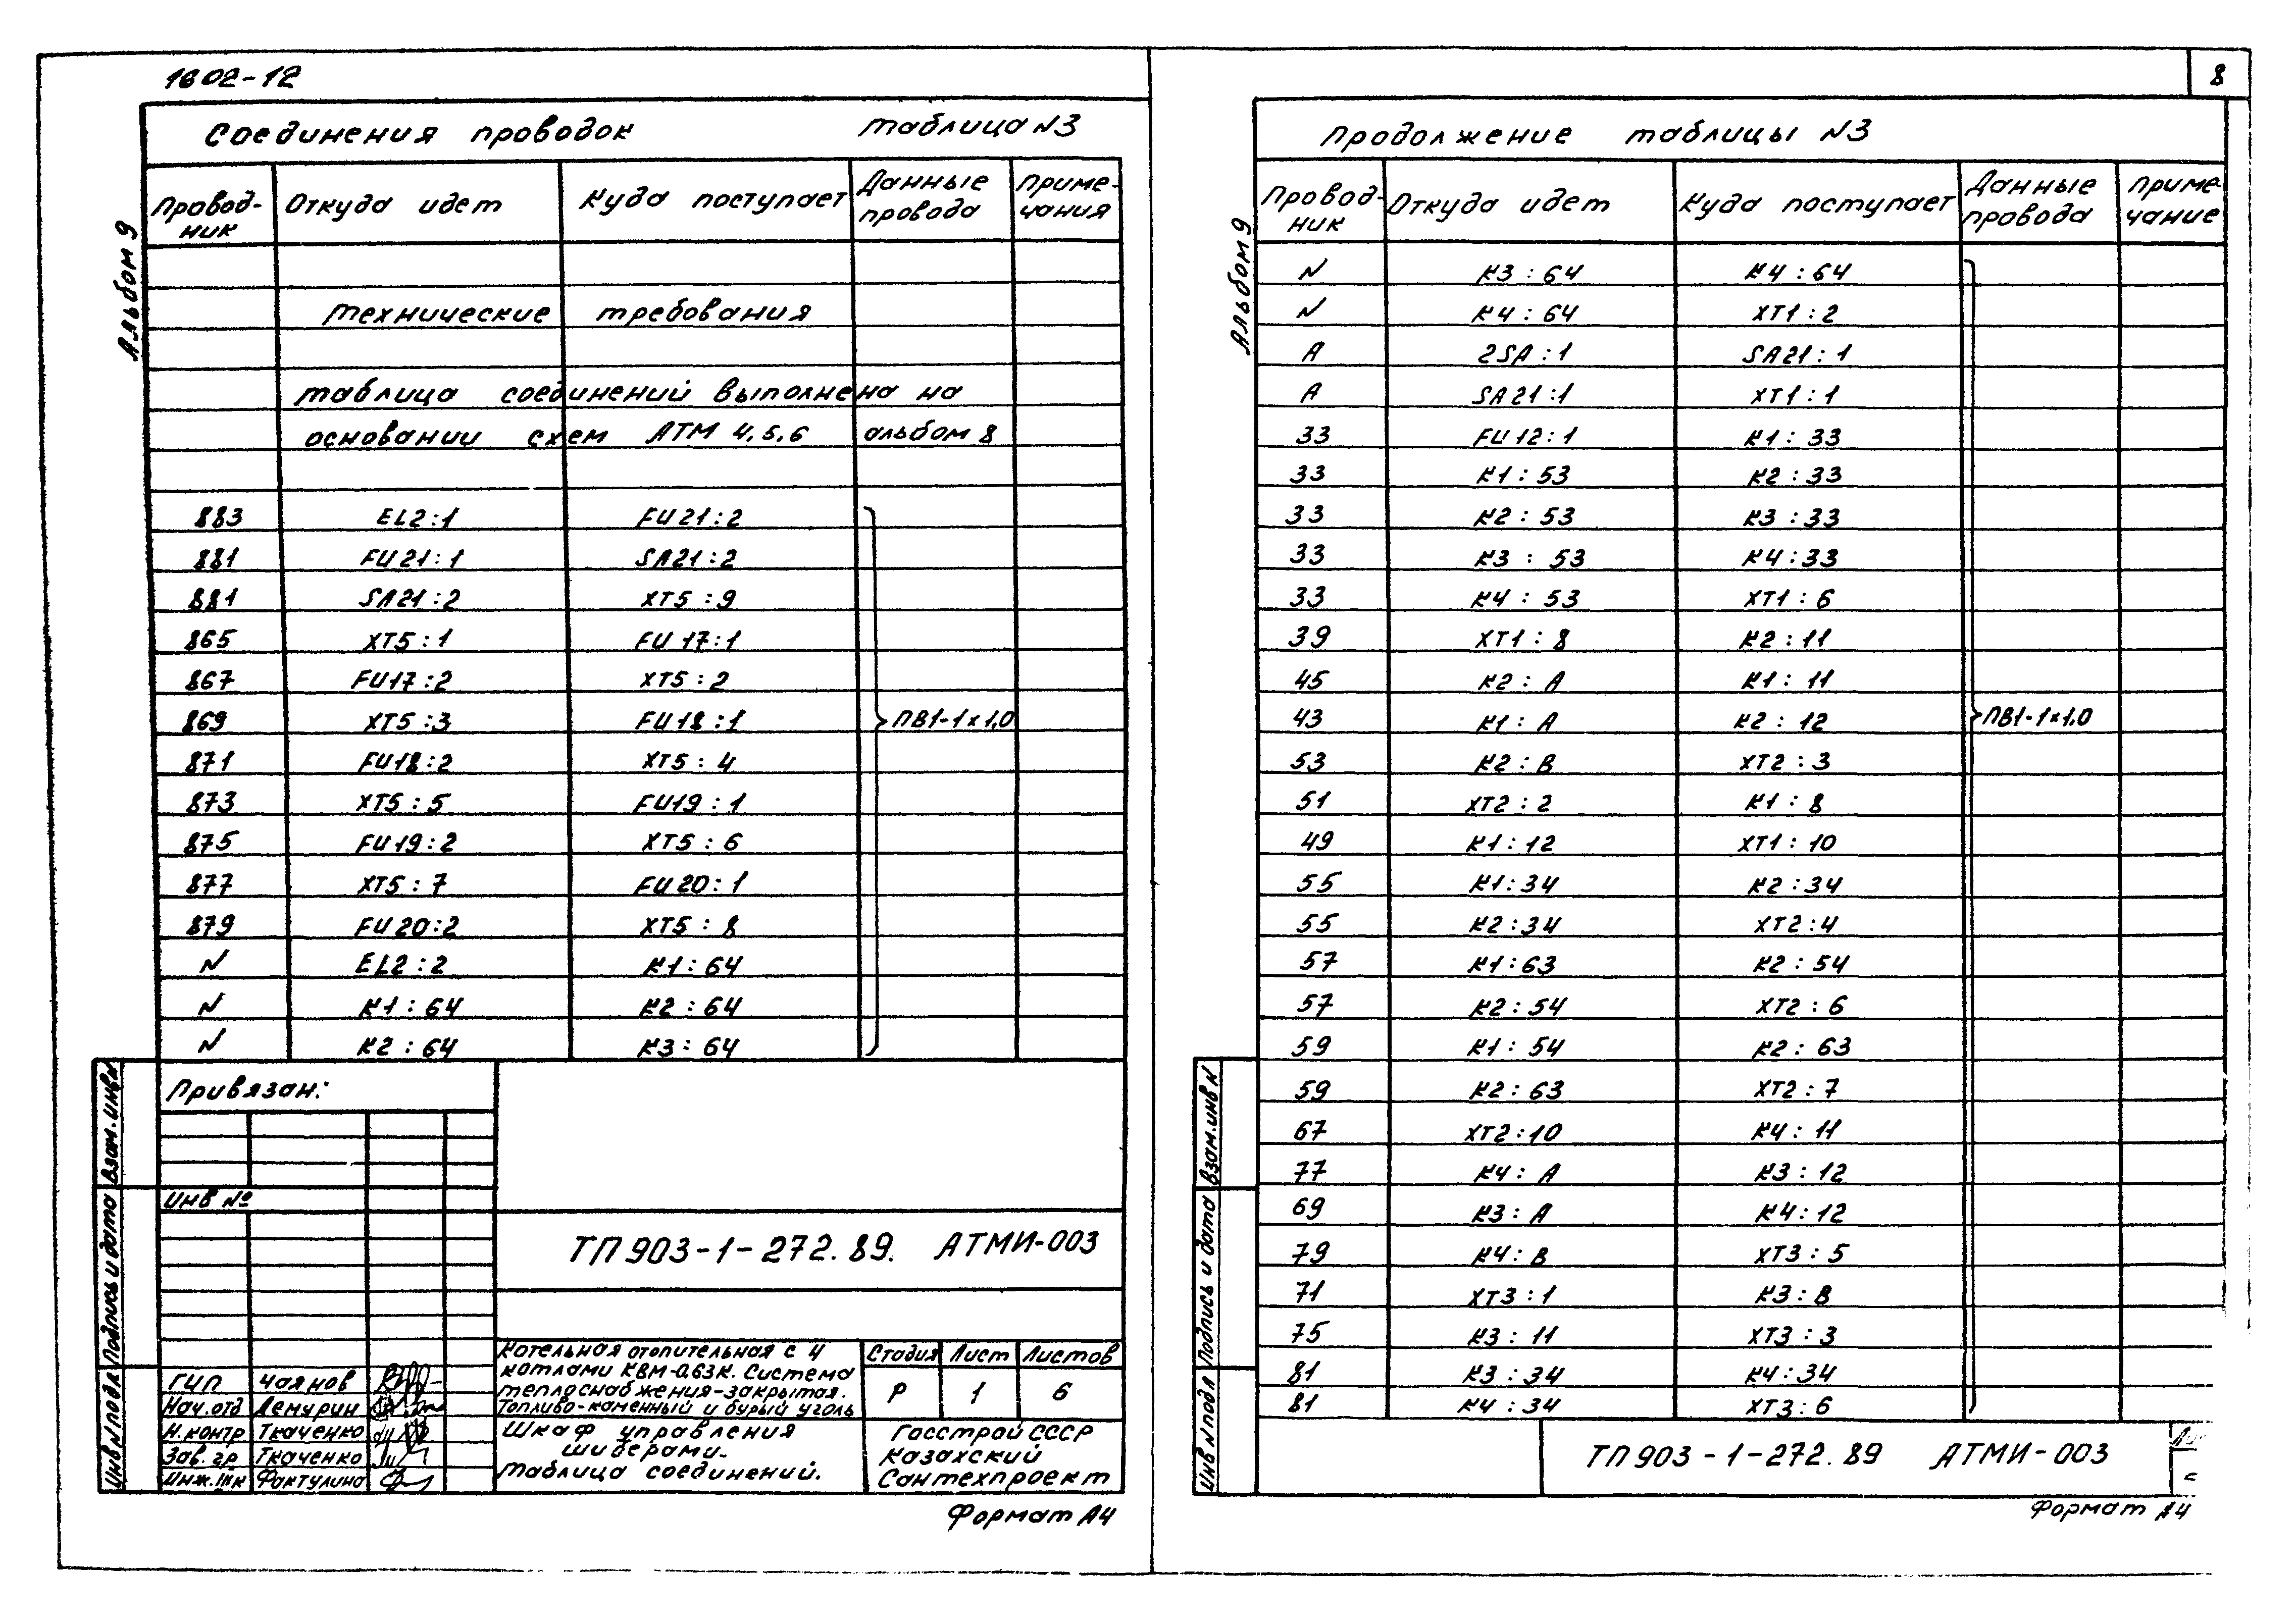 1602-12
8
Альбом 9
Соединения проводок Таблица N3
Провод- Откуда идет Куда поступает Данные Приме-
ник провода чания
Технические требования
Таблица соединений выполнена на
основании схем АТМ 4,5,6 альбом 8
883 EL2:1 FU21:2
881 FU21:1 SA21:2
881 SA21:2 XT5:9
865 XT5:1 FU17:1
867 FU17:2 XT5:2
869 XT5:3 FU18:1 ПВ1-1×1,0
871 FU18:2 XT5:4
873 XT5:5 FU19:1
875 FU19:2 XT5:6
877 XT5:7 FU20:1
879 FU20:2 XT5:8
N EL2:2 K1:64
N K1:64 K2:64
N K2:64 K3:64
Привязан:
Инв №
Взам.инв N
Подпись и дата
Инв N подл
ТП 903-1-272.89. АТМИ-003
Котельная отопительная с 4
котлами КВм-0.63К. Система
теплоснабжения-закрытая.
Топливо-каменный и бурый уголь
Стадия Лист Листов
Р 1 6
ГИП Чаянов
Нач.отд Демурин
Н.контр Ткаченко
Зав.гр Ткаченко
Инж.IIк Фактулина
Шкаф управления
шиберами.
Таблица соединений.
Госстрой СССР
Казахский
Сантехпроект
Формат А4
Альбом 9
Продолжение таблицы N3
Провод- Откуда идет Куда поступает Данные Приме-
ник провода чание
N K3:64 K4:64
N K4:64 XT1:2
A 2SA:1 SA21:1
A SA21:1 XT1:1
33 FU12:1 K1:33
33 K1:53 K2:33
33 K2:53 K3:33
33 K3:53 K4:33
33 K4:53 XT1:6
39 XT1:8 K2:11
45 K2:A K1:11
43 K1:A K2:12 ПВ1-1×1,0
53 K2:B XT2:3
51 XT2:2 K1:8
49 K1:12 XT1:10
55 K1:34 K2:34
55 K2:34 XT2:4
57 K1:63 K2:54
57 K2:54 XT2:6
59 K1:54 K2:63
59 K2:63 XT2:7
67 XT2:10 K4:11
77 K4:A K3:12
69 K3:A K4:12
79 K4:B XT3:5
71 XT3:1 K3:B
75 K3:11 XT3:3
81 K3:34 K4:34
81 K4:34 XT3:6
Взам.инв N
Подпись и дата
Инв N подл
ТП 903-1-272.89 АТМИ-003
Формат А4